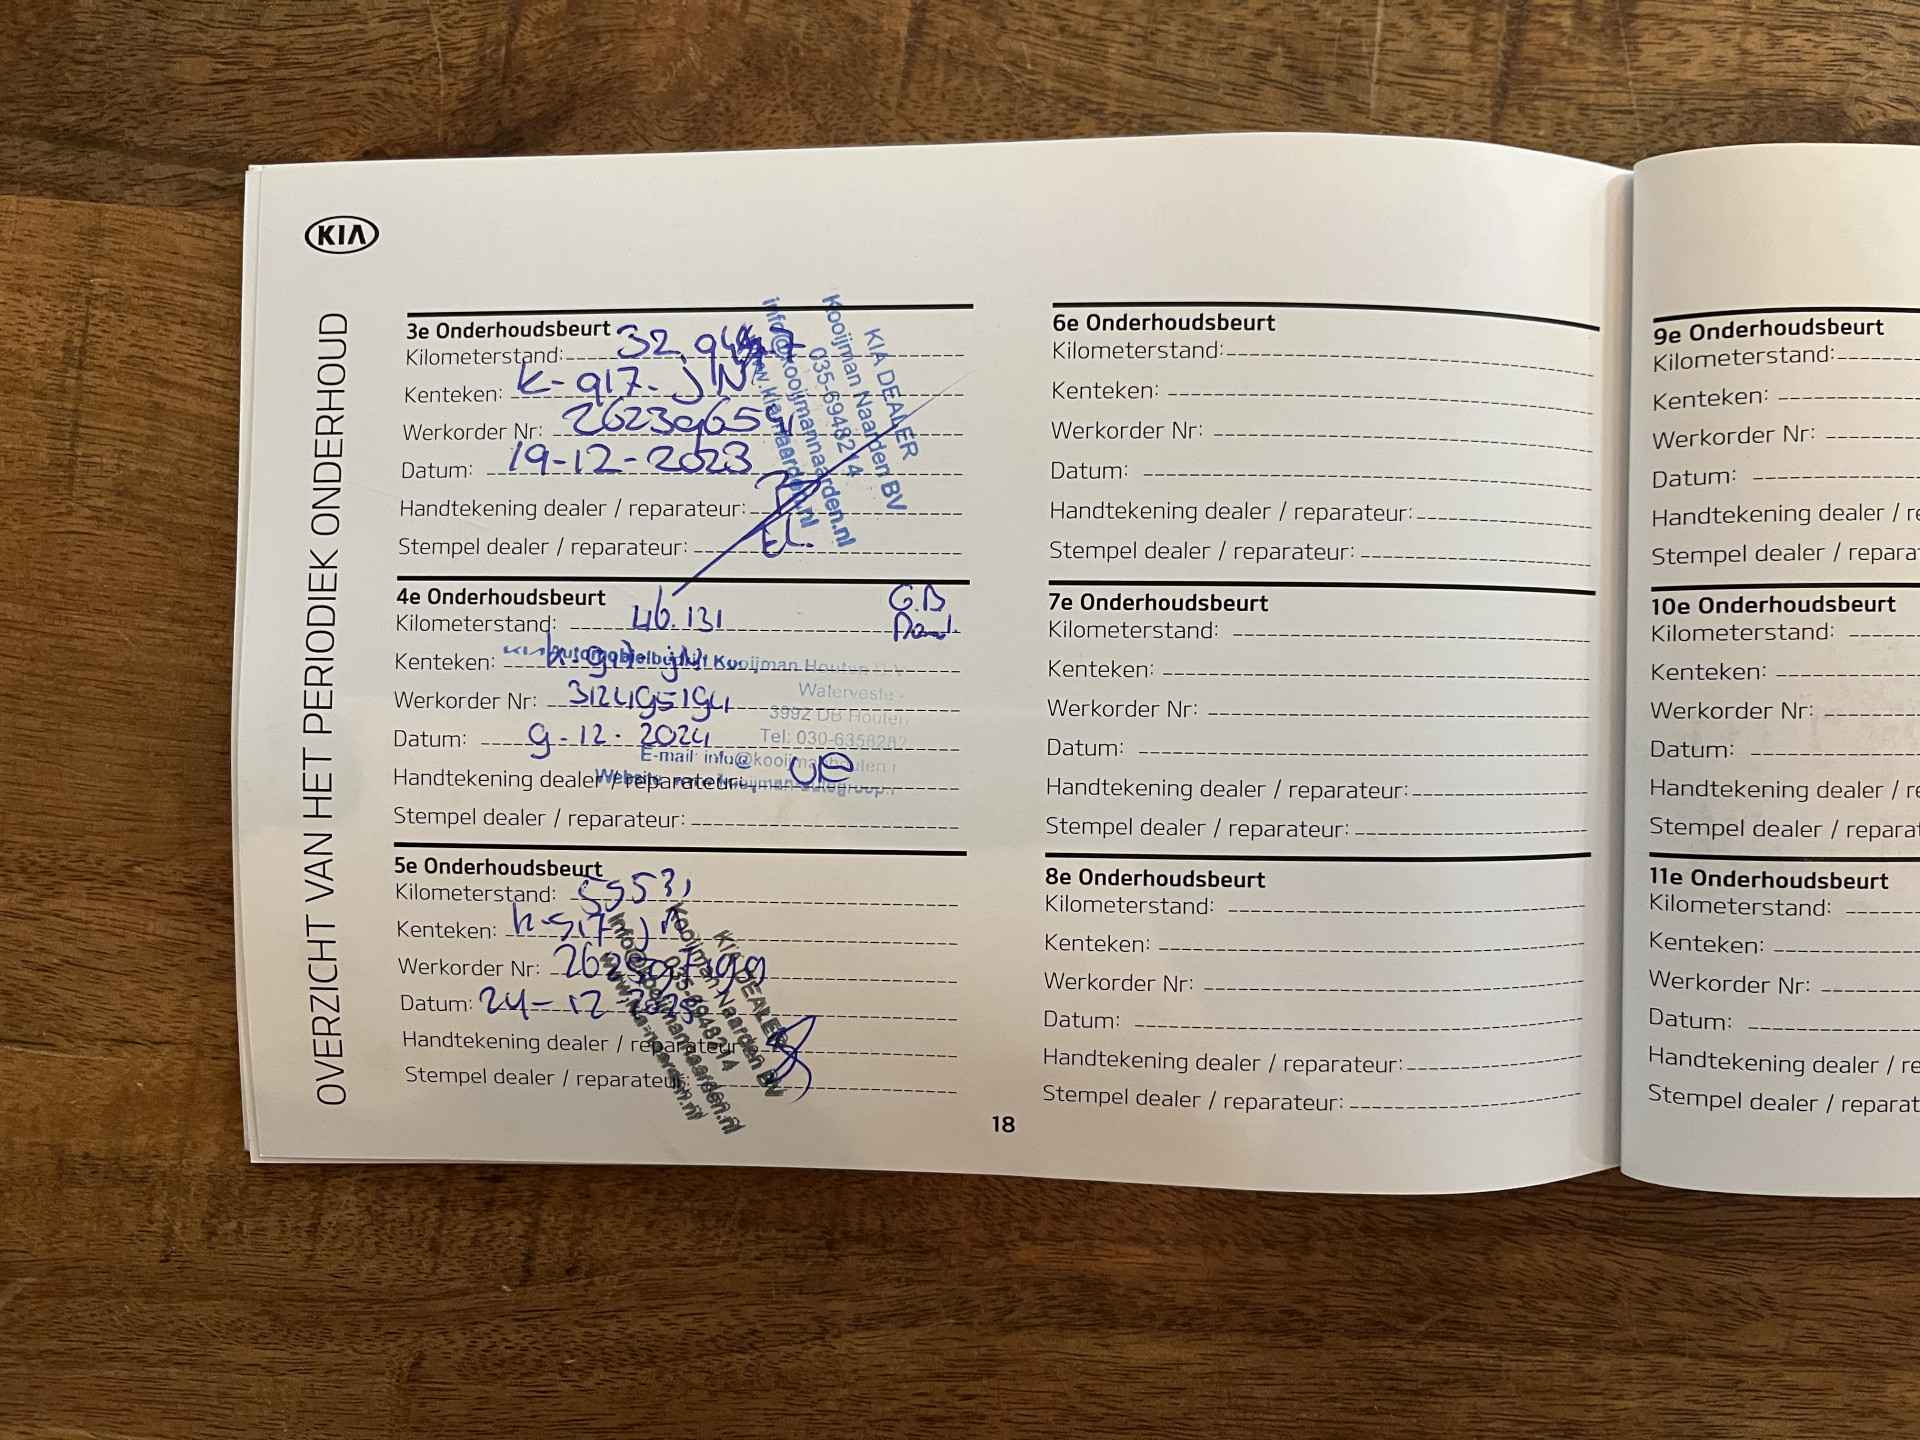 KIA
OVERZICHT VAN HET PERIODIEK ONDERHOUD
3e Onderhoudsbeurt
Kilometerstand: 32.94
Kenteken: K-917-JN
Werkorder Nr:
Datum: 19-12-2023
Handtekening dealer / reparateur:
Stempel dealer / reparateur:
KIA DEALER
Kooijman Naarden BV
035-6948214
info@kooijmannaarden.nl
www.kia-naarden.nl
4e Onderhoudsbeurt
Kilometerstand: 46.131
G.B
Kenteken:
Automobielbedrijf Kooijman Houten
Waterveste
Werkorder Nr: 312495194
3992 DB Houten
Datum: 9-12-2024
Tel: 030-6358282
E-mail: info@kooijmanhouten.n
Handtekening dealer / reparateur:
Stempel dealer / reparateur:
5e Onderhoudsbeurt
Kilometerstand: 55531
Kenteken: K-917-J
Werkorder Nr:
Datum: 24-12-2025
Handtekening dealer / reparateur
Stempel dealer / reparateur
KIA DEALER
Kooijman Naarden BV
035-6948214
info@kooijmannaarden.nl
www.kia-naarden.nl
6e Onderhoudsbeurt
Kilometerstand:
Kenteken:
Werkorder Nr:
Datum:
Handtekening dealer / reparateur:
Stempel dealer / reparateur:
7e Onderhoudsbeurt
Kilometerstand:
Kenteken:
Werkorder Nr:
Datum:
Handtekening dealer / reparateur:
Stempel dealer / reparateur:
8e Onderhoudsbeurt
Kilometerstand:
Kenteken:
Werkorder Nr:
Datum:
Handtekening dealer / reparateur:
Stempel dealer / reparateur:
18
9e Onderhoudsbeurt
Kilometerstand:
Kenteken:
Werkorder Nr:
Datum:
Handtekening dealer / re
Stempel dealer / repara
10e Onderhoudsbeurt
Kilometerstand:
Kenteken:
Werkorder Nr:
Datum:
Handtekening dealer / re
Stempel dealer / reparat
11e Onderhoudsbeurt
Kilometerstand:
Kenteken:
Werkorder Nr:
Datum:
Handtekening dealer / re
Stempel dealer / reparat